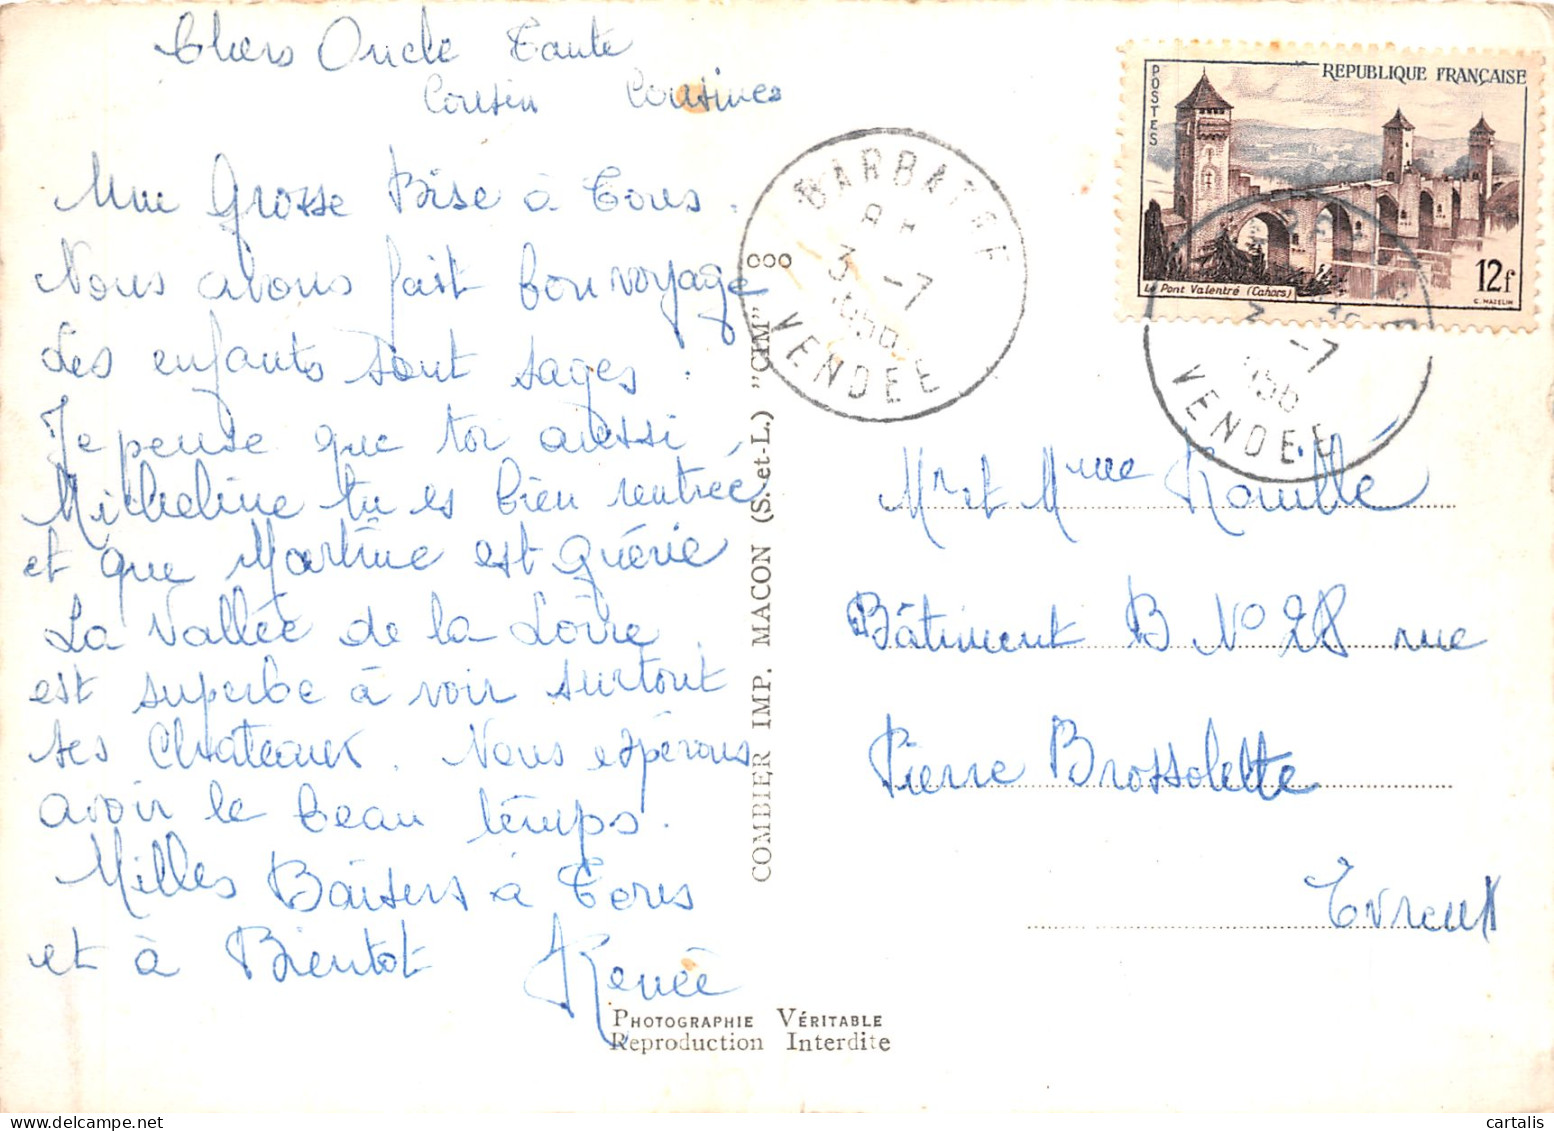 Chers Oncle Tante
Cousin Cousines
Une Grosse Bise à Tous.
Nous avons fait bon voyage
Les enfants sont sages.
Je pense que toi aussi
Micheline tu es bien rentrée
et que Martine est guérie
La Vallée de la Loire
est superbe à voir surtout
ses Chateaux. Nous espérons
avoir le beau temps.
Milles Baisers à Tous
et à Bientot Renée
PHOTOGRAPHIE VÉRITABLE
Reproduction Interdite
COMBIER IMP. MACON (S.-et-L.) "CIM"
BARBATRE
3 -7
1956
VENDEE
POSTES
REPUBLIQUE FRANÇAISE
Le Pont Valentré (Cahors)
12f
C. MAZELIN
-7
VENDEE
Mr et Mme Rouille
Bâtiment B No 28 rue
Pierre Brossolette
Evreux
cartalis